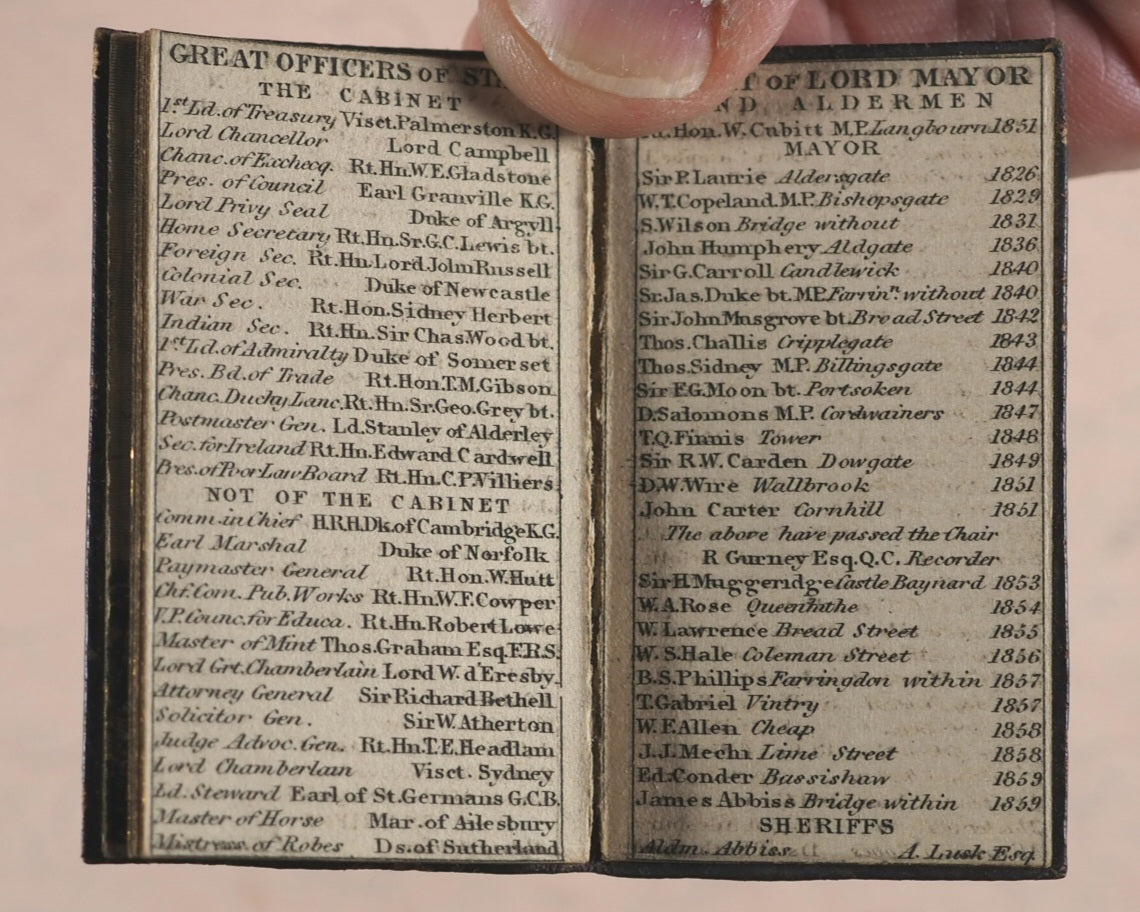 GREAT OFFICERS OF
THE CABINET
1st Ld. of Treasury Visct. Palmerston K.G.
Lord Chancellor Lord Campbell
Chanc. of Exchecq. Rt. Hn. W.E. Gladstone
Pres. of Council Earl Granville K.G.
Lord Privy Seal Duke of Argyll
Home Secretary Rt. Hn. Sr. G.C. Lewis bt.
Foreign Sec. Rt. Hn. Lord John Russell
Colonial Sec. Duke of Newcastle
War Sec. Rt. Hon. Sidney Herbert
Indian Sec. Rt. Hn. Sir Chas. Wood bt.
1st Ld. of Admiralty Duke of Somerset
Pres. Bd. of Trade Rt. Hon. T.M. Gibson
Chanc. Duchy Lanc. Rt. Hn. Sr. Geo. Grey bt.
Postmaster Gen. Ld. Stanley of Alderley
Sec. for Ireland Rt. Hn. Edward Cardwell
Pres. of Poor Law Board Rt. Hn. C.P. Villiers
NOT OF THE CABINET
Comm. in Chief H.R.H. Dk. of Cambridge K.G.
Earl Marshal Duke of Norfolk
Paymaster General Rt. Hon. W. Hutt
Chf. Com. Pub. Works Rt. Hn. W.F. Cowper
V.P. Counc. for Educa. Rt. Hn. Robert Lowe
Master of Mint Thos. Graham Esq. F.R.S.
Lord Grt. Chamberlain Lord W. d'Eresby
Attorney General Sir Richard Bethell
Solicitor Gen. Sir W. Atherton
Judge Advoc. Gen. Rt. Hn. T.E. Headlam
Lord Chamberlain Visct. Sydney
Ld. Steward Earl of St. Germans G.C.B.
Master of Horse Mar. of Ailesbury
Mistress of Robes Ds. of Sutherland
OF LORD MAYOR
ALDERMEN
Hon. W. Cubitt M.P. Langbourn 1851
MAYOR
Sir P. Laurie Aldersgate 1826
W.T. Copeland. M.P. Bishopsgate 1829
S. Wilson Bridge without 1831
John Humphery Aldgate 1836
Sir G. Carroll Candlewick 1840
Sr. Jas. Duke bt. MP. Farrinn. without 1840
Sir John Musgrove bt. Broad Street 1842
Thos. Challis Cripplegate 1843
Thos. Sidney M.P. Billingsgate 1844
Sir F.G. Moon bt. Portsoken 1844
D. Salomons M.P. Cordwainers 1847
T.Q. Finnis Tower 1848
Sir R.W. Carden Dowgate 1849
D.W. Wire Wallbrook 1851
John Carter Cornhill 1851
The above have passed the Chair
R Gurney Esq. Q.C. Recorder
Sir H. Muggeridge Castle Baynard 1853
W.A. Rose Queenhithe 1854
W. Lawrence Bread Street 1855
W.S. Hale Coleman Street 1856
B.S. Phillips Farringdon within 1857
T. Gabriel Vintry 1857
W.F. Allen Cheap 1858
J.J. Mechi Lime Street 1858
Ed. Conder Bassishaw 1859
James Abbiss Bridge within 1859
SHERIFFS
Aldm. Abbiss A. Lusk Esq.